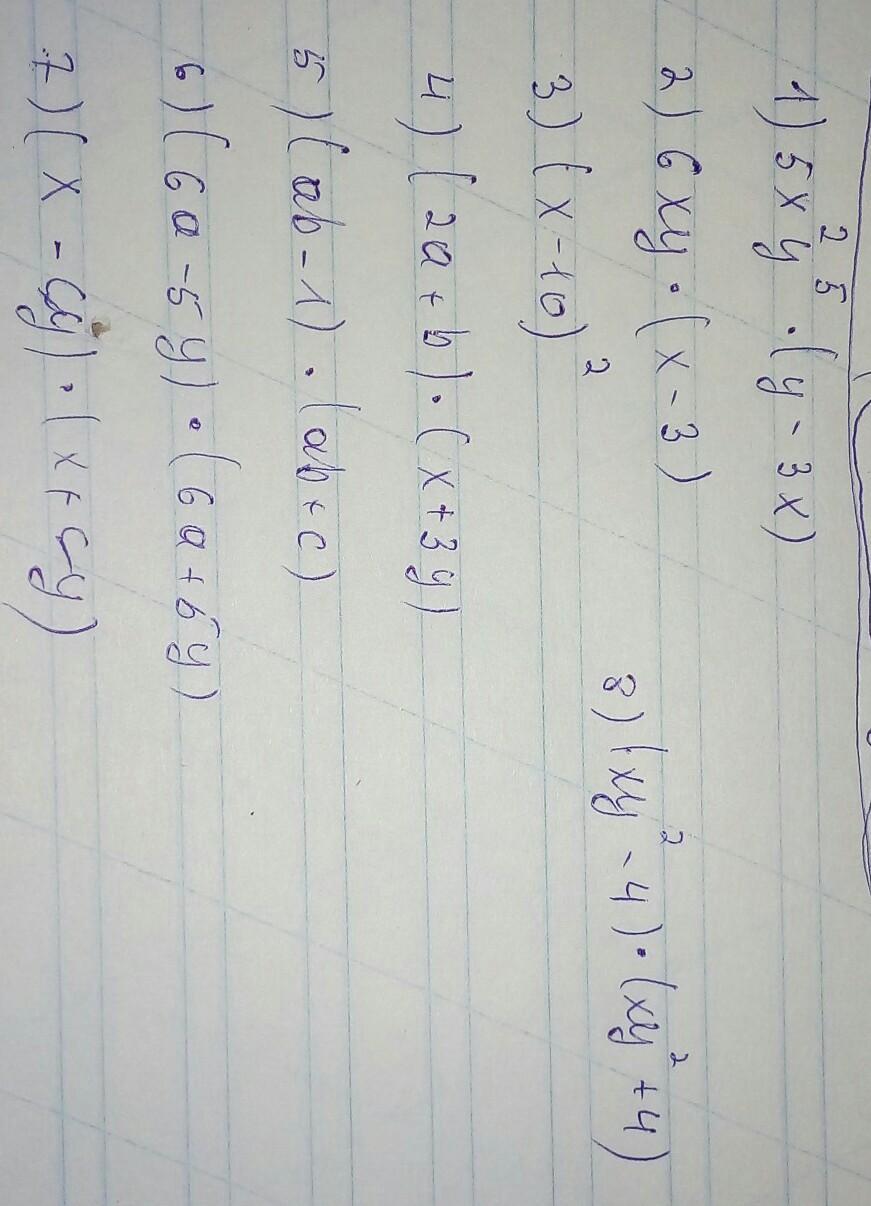 1) 5x²y⁵ · (y - 3x)
2) 6xy · (x - 3)
3) (x - 10)²
4) (2a + b) · (x + 3y)
5) (ab - 1) · (ab + c)
6) (6a - 5y) · (6a + 5y)
7) (x - cy) · (x + cy)
8) (xy² - 4) · (xy² + 4)